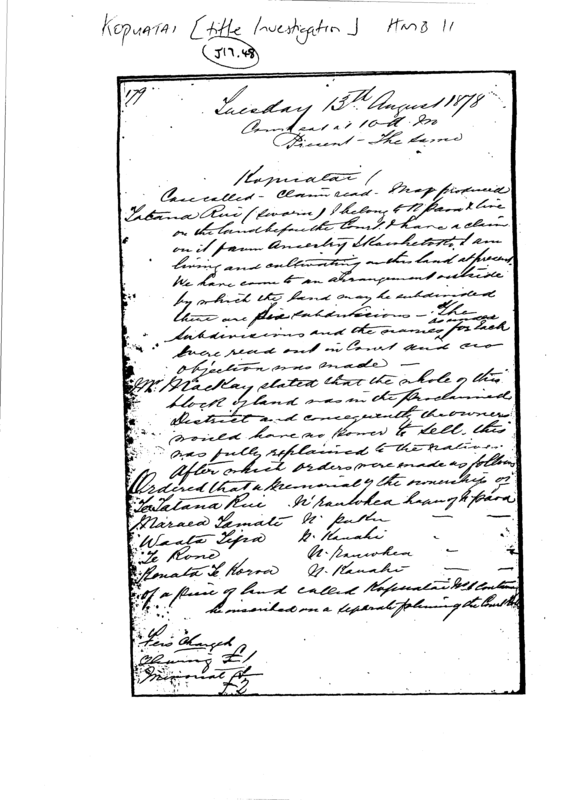 KOPUATAI [title Investigation] HMB 11
J17.48
179
Tuesday 13th August 1878
Court sat at 10 A.M
Present - The same
Kopuatai 1
Case called - Claim read - Map produced
Tatana Rui (sworn) I belong to N Paoa & live
on the land before the Court. I have a claim
on it from Ancestry I am
living and cultivating on this land at present.
We have come to an arrangement outside
by which the land may be subdivided
there are six subdivisions - The
Subdivisions and the names of owners for each
were read out in Court and no
objection was made -
Mr. Mackay stated that the whole of this
block of land was in the Proclaimed
District and consequently the owners
would have no power to sell. this
was fully explained to the natives.
After which orders were made as follows
Ordered that a Memorial of the ownership of
Te Tatana Rui hapu of N paoa
Maraea Tamati N' puku — —
Waata Tipa N. Kauahi - -
Te Rone - -
Renata Te Korou N. Kauahi — —
of a piece of land called Kopuatai No 1
be inscribed on a separate plan in the Court
Fees Charged
Hearing £1
Memorial £1
£2